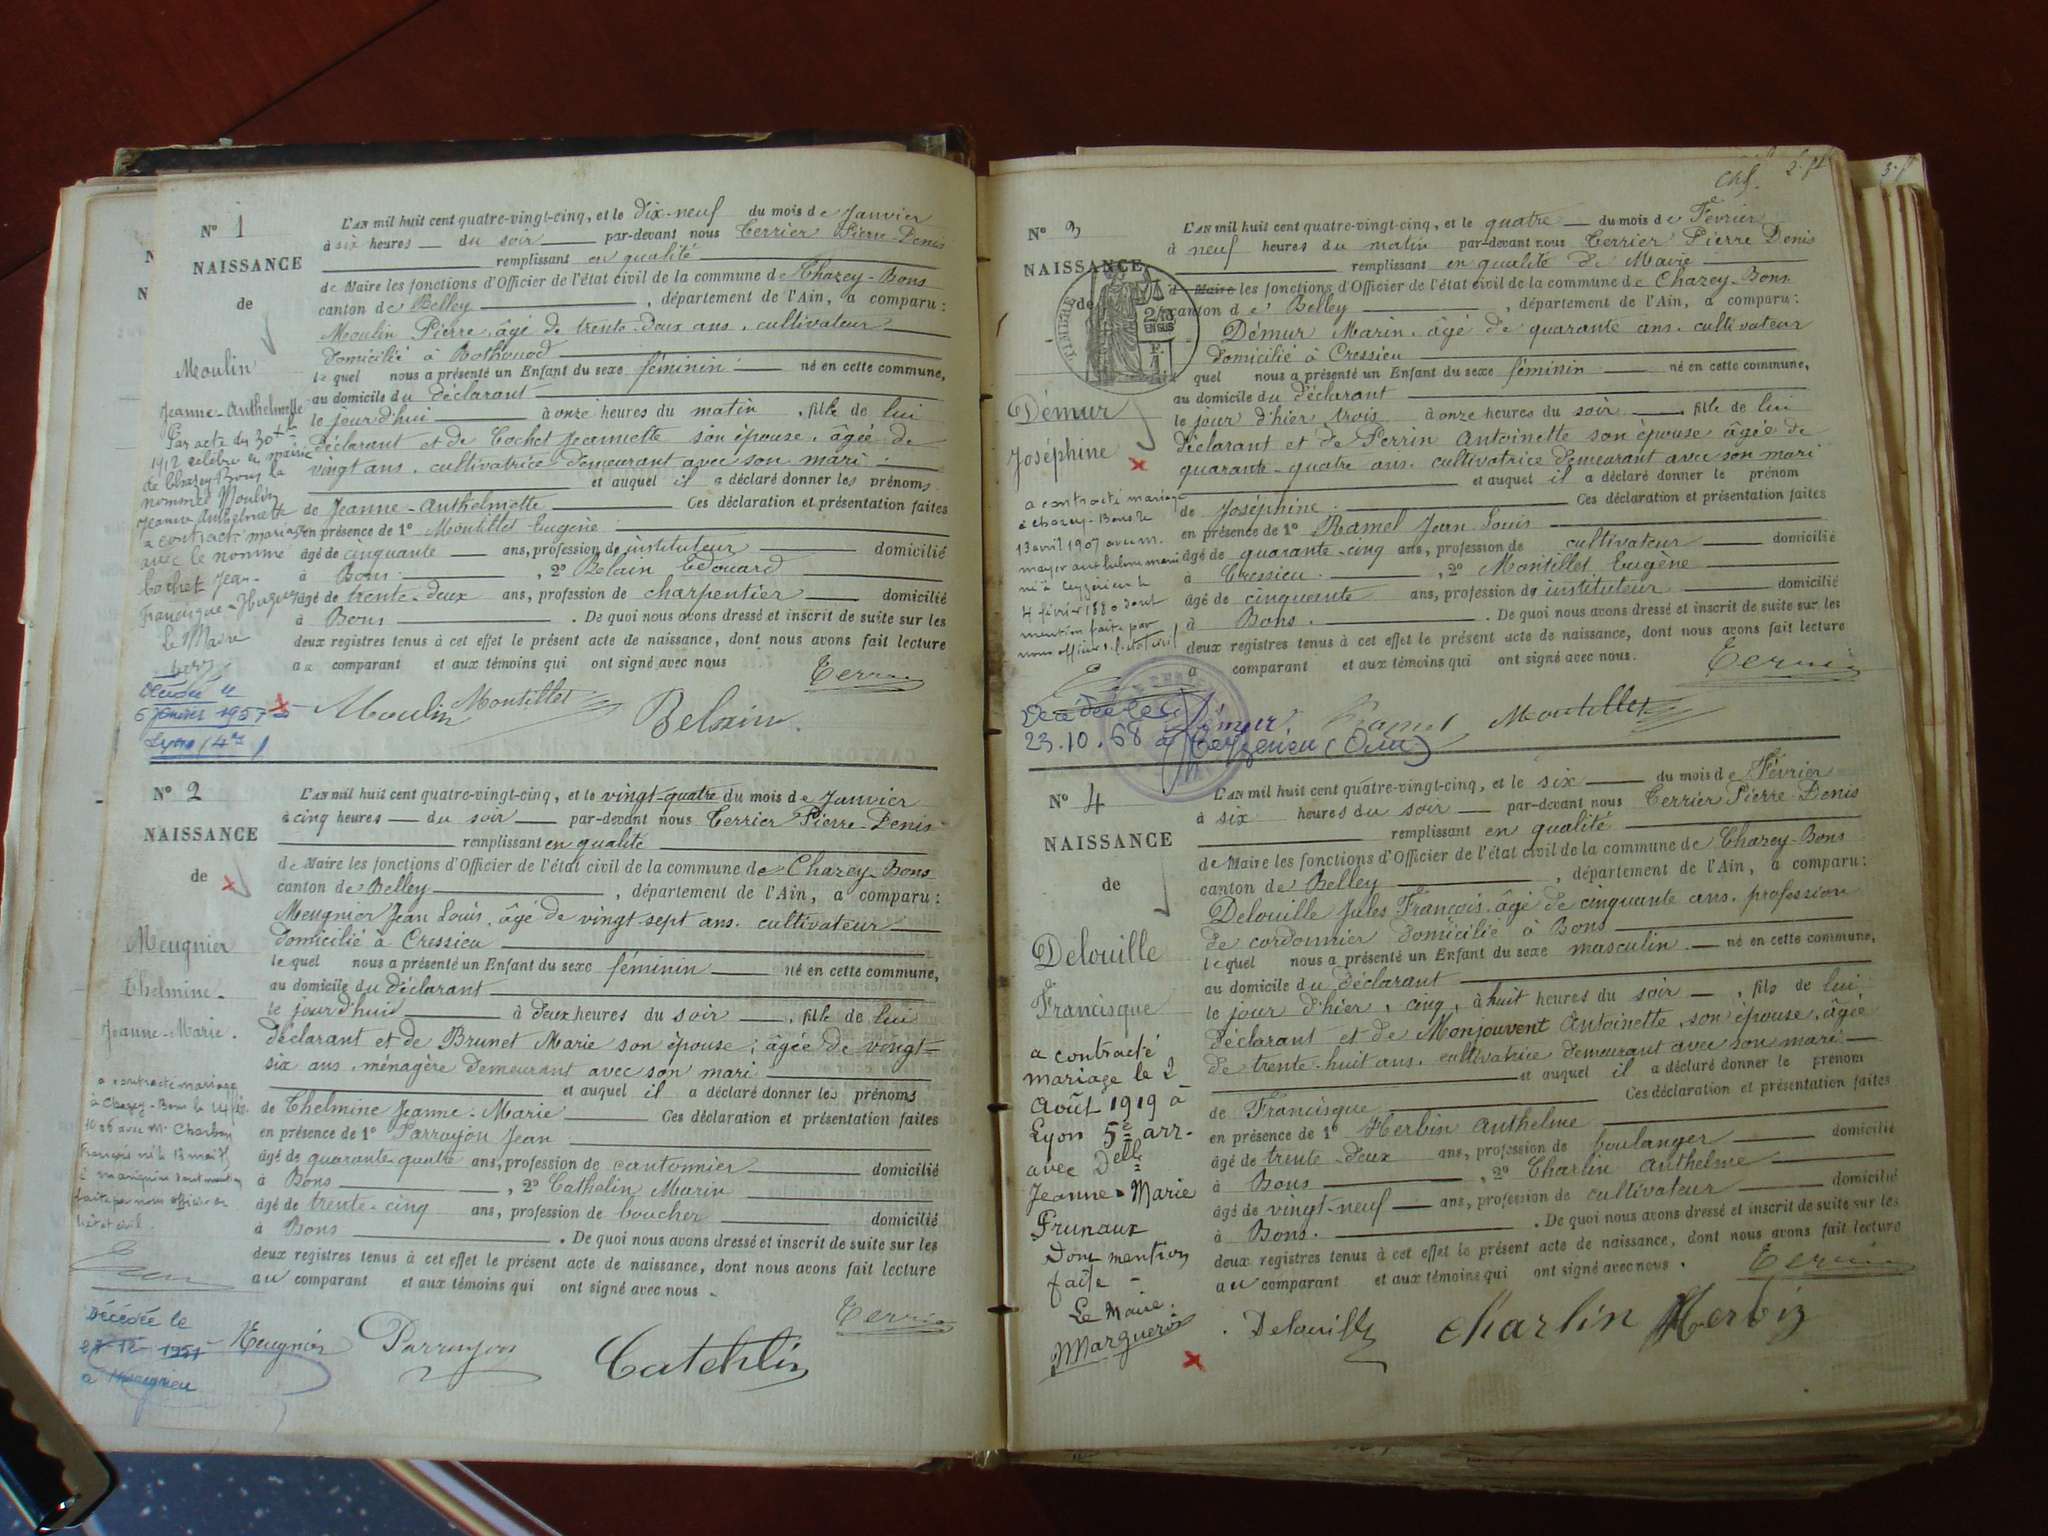 N° 1
NAISSANCE
de
Moulin
Jeanne-Anthelmette
Par acte du 30
1912 célébré en mairie
de Chazey-Bons la
nommée Moulin
Jeanne Anthelmette
a contracté mariage
avec le nommé
Cochet Jean-
Francisque-
Le Maire
6 Janvier 1957
Lyon (4e)
L'AN mil huit cent quatre-vingt-cinq, et le dix-neuf du mois de Janvier
à six heures du soir par-devant nous Terrier Pierre-Denis
remplissant en qualité
de Maire les fonctions d'Officier de l'état civil de la commune de Chazey-Bons
canton de Belley, département de l'Ain, a comparu:
Moulin Pierre, âgé de trente-deux ans, cultivateur
domicilié à Rothonod
lequel nous a présenté un Enfant du sexe féminin né en cette commune,
au domicile du déclarant
le jour d'hui à onze heures du matin, fille de lui
déclarant et de Cochet Jeannette son épouse, âgée de
vingt ans, cultivatrice demeurant avec son mari
et auquel il a déclaré donner les prénoms
de Jeanne-Anthelmette Ces déclaration et présentation faites
en présence de 1° Montillet Eugène
âgé de cinquante ans, profession de instituteur domicilié
à Bons, 2° Belain Edouard
âgé de trente-deux ans, profession de charpentier domicilié
à Bons. De quoi nous avons dressé et inscrit de suite sur les
deux registres tenus à cet effet le présent acte de naissance, dont nous avons fait lecture
au comparant et aux témoins qui ont signé avec nous
Terrier
Moulin Montillet Belain
N° 2
NAISSANCE
de
Meugnier
Thelmine-
Jeanne-Marie.
a contracté mariage
à Chazey-Bons le 14
avec Mr Charbon
François né le 13 mai
dont mention
faite par nous officier de
l'état civil.
Décédée le
1951
L'AN mil huit cent quatre-vingt-cinq, et le vingt-quatre du mois de Janvier
à cinq heures du soir par-devant nous Terrier Pierre-Denis
remplissant en qualité
de Maire les fonctions d'Officier de l'état civil de la commune de Chazey-Bons
canton de Belley, département de l'Ain, a comparu:
Meugnier Jean Louis, âgé de vingt-sept ans, cultivateur
domicilié à Cressieu
lequel nous a présenté un Enfant du sexe féminin né en cette commune,
au domicile du déclarant
le jour d'hui à deux heures du soir, fille de lui
déclarant et de Brunet Marie son épouse, âgée de vingt-
six ans, ménagère demeurant avec son mari
et auquel il a déclaré donner les prénoms
de Thelmine Jeanne-Marie Ces déclaration et présentation faites
en présence de 1° Parrayon Jean
âgé de quarante-quatre ans, profession de cantonnier domicilié
à Bons, 2° Cathelin Marin
âgé de trente-cinq ans, profession de boucher domicilié
à Bons. De quoi nous avons dressé et inscrit de suite sur les
deux registres tenus à cet effet le présent acte de naissance, dont nous avons fait lecture
au comparant et aux témoins qui ont signé avec nous.
Terrier
Meugnier Parrayon Catehlin
2. f
3. f
N° 3
NAISSANCE
de
2/10
EN SUS
Démur
Joséphine
a contracté mariage
à Chazey-Bons le
13 avril 1907 avec M.
mayer anthelme marie
né à Ceyzérieu le
4 février 1880 dont
mention faite par
nous officier de l'état civil
23.10.68 à Ceyzérieu (Ain)
L'AN mil huit cent quatre-vingt-cinq, et le quatre du mois de Février
à neuf heures du matin par-devant nous Terrier Pierre Denis
remplissant en qualité de Maire
de Maire les fonctions d'Officier de l'état civil de la commune de Chazey-Bons
canton de Belley, département de l'Ain, a comparu:
Démur Marin, âgé de quarante ans, cultivateur
domicilié à Cressieu
quel nous a présenté un Enfant du sexe féminin né en cette commune,
au domicile du déclarant
le jour d'hier trois à onze heures du soir, fille de lui
déclarant et de Perrin Antoinette son épouse âgée de
quarante-quatre ans, cultivatrice demeurant avec son mari
et auquel il a déclaré donner le prénom
de Joséphine. Ces déclaration et présentation faites
en présence de 1° Ramel Jean-Louis
âgé de quarante-cinq ans, profession de cultivateur domicilié
à Cressieu, 2° Montillet Eugène
âgé de cinquante ans, profession de instituteur domicilié
à Bons. De quoi nous avons dressé et inscrit de suite sur les
deux registres tenus à cet effet le présent acte de naissance, dont nous avons fait lecture
a comparant et aux témoins qui ont signé avec nous.
Terrier
Démur Ramel Montillet
N° 4
NAISSANCE
de
Delouille
Francisque
a contracté
mariage le 2
Août 1919 à
Lyon 5e arr.
avec Delle
Jeanne-Marie
Prunaux
Dont mention
faite -
Le Maire:
L'AN mil huit cent quatre-vingt-cinq, et le six du mois de Février
à six heures du soir par-devant nous Terrier Pierre-Denis
remplissant en qualité
de Maire les fonctions d'Officier de l'état civil de la commune de Chazey-Bons
canton de Belley, département de l'Ain, a comparu:
Delouille Jules François, âgé de cinquante ans, profession
de cordonnier domicilié à Bons
lequel nous a présenté un Enfant du sexe masculin né en cette commune,
au domicile du déclarant
le jour d'hier, cinq, à huit heures du soir, fils de lui
déclarant et de Monjouvent Antoinette, son épouse, âgée
de trente-huit ans, cultivatrice demeurant avec son mari
et auquel il a déclaré donner le prénom
de Francisque Ces déclaration et présentation faites
en présence de 1° Herbin Anthelme
âgé de trente-deux ans, profession de boulanger domicilié
à Bons, 2° Charlin Anthelme
âgé de vingt-neuf ans, profession de cultivateur domicilié
à Bons. De quoi nous avons dressé et inscrit de suite sur les
deux registres tenus à cet effet le présent acte de naissance, dont nous avons fait lecture
au comparant et aux témoins qui ont signé avec nous.
Terrier
Delouille Charlin Herbin